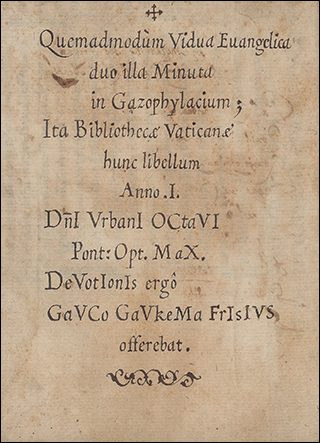 Quemadmodùm Vidua Euangelica
duo illa Minuta
in Gazophylacium;
Ita Bibliothecæ Vaticanæ
hunc libellum
Anno .I.
Dn̄I VrbanI OCtaVI
Pont: Opt. MaX.
DeVotIonIs ergô
GaVCo GaVkeMa FrIsIVS
offerebat.